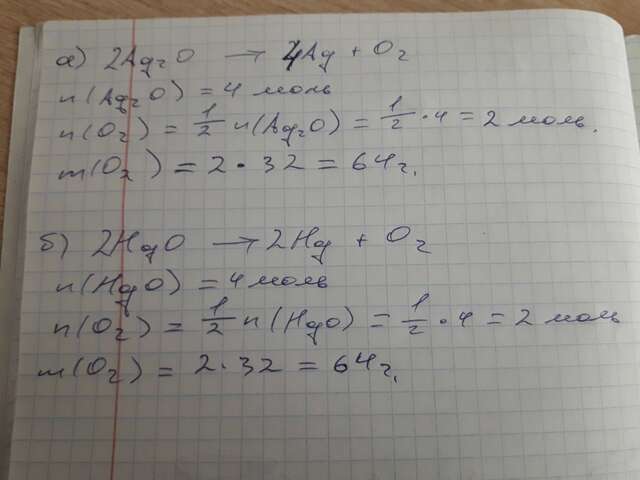 а) 2Ag₂O → 4Ag + O₂
n(Ag₂O) = 4 моль
n(O₂) = 1/2 n(Ag₂O) = 1/2 · 4 = 2 моль.
m(O₂) = 2 · 32 = 64г.
б) 2HgO → 2Hg + O₂
n(HgO) = 4 моль
n(O₂) = 1/2 n(HgO) = 1/2 · 4 = 2 моль
m(O₂) = 2 · 32 = 64г.